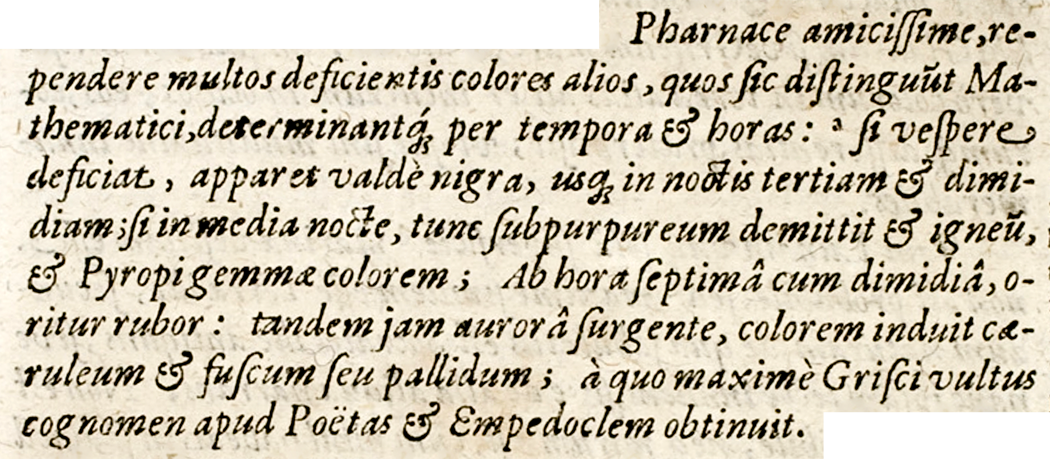 Pharnace amiciſſime, re-
pendere multos deficientis colores alios, quos ſic diſtinguũt Ma-
thematici, determinantq́; per tempora & horas: ᵃ ſi veſpere
deficiat, apparet valdè nigra, usq; in noctis tertiam & dimi-
diam; ſi in media nocte, tunc ſubpurpureum demittit & igneũ,
& Pyropi gemmæ colorem; Ab hora ſeptimâ cum dimidiâ, o-
ritur rubor: tandem jam aurorâ ſurgente, colorem induit cæ-
ruleum & fuſcum ſeu pallidum; à quo maximè Griſci vultus
cognomen apud Poëtas & Empedoclem obtinuit.